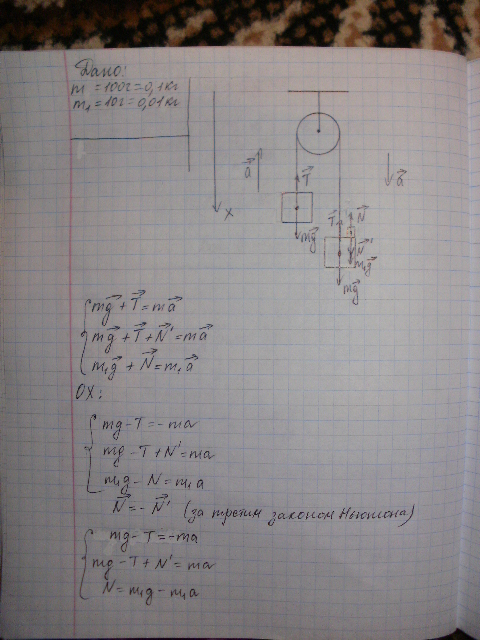 Дано:
m = 100г = 0,1кг
m₁ = 10г = 0,01кг
a⃗
T⃗
a⃗
x
mg⃗
T⃗
N⃗
N⃗'
m₁g⃗
mg⃗
mg⃗ + T⃗ = ma⃗
mg⃗ + T⃗ + N⃗' = ma⃗
m₁g⃗ + N⃗ = m₁a⃗
OX:
mg - T = - ma
mg - T + N' = ma
m₁g - N = m₁a
N⃗ = - N⃗' (за третім законом Ньютона)
mg - T = - ma
mg - T + N' = ma
N = m₁g - m₁a